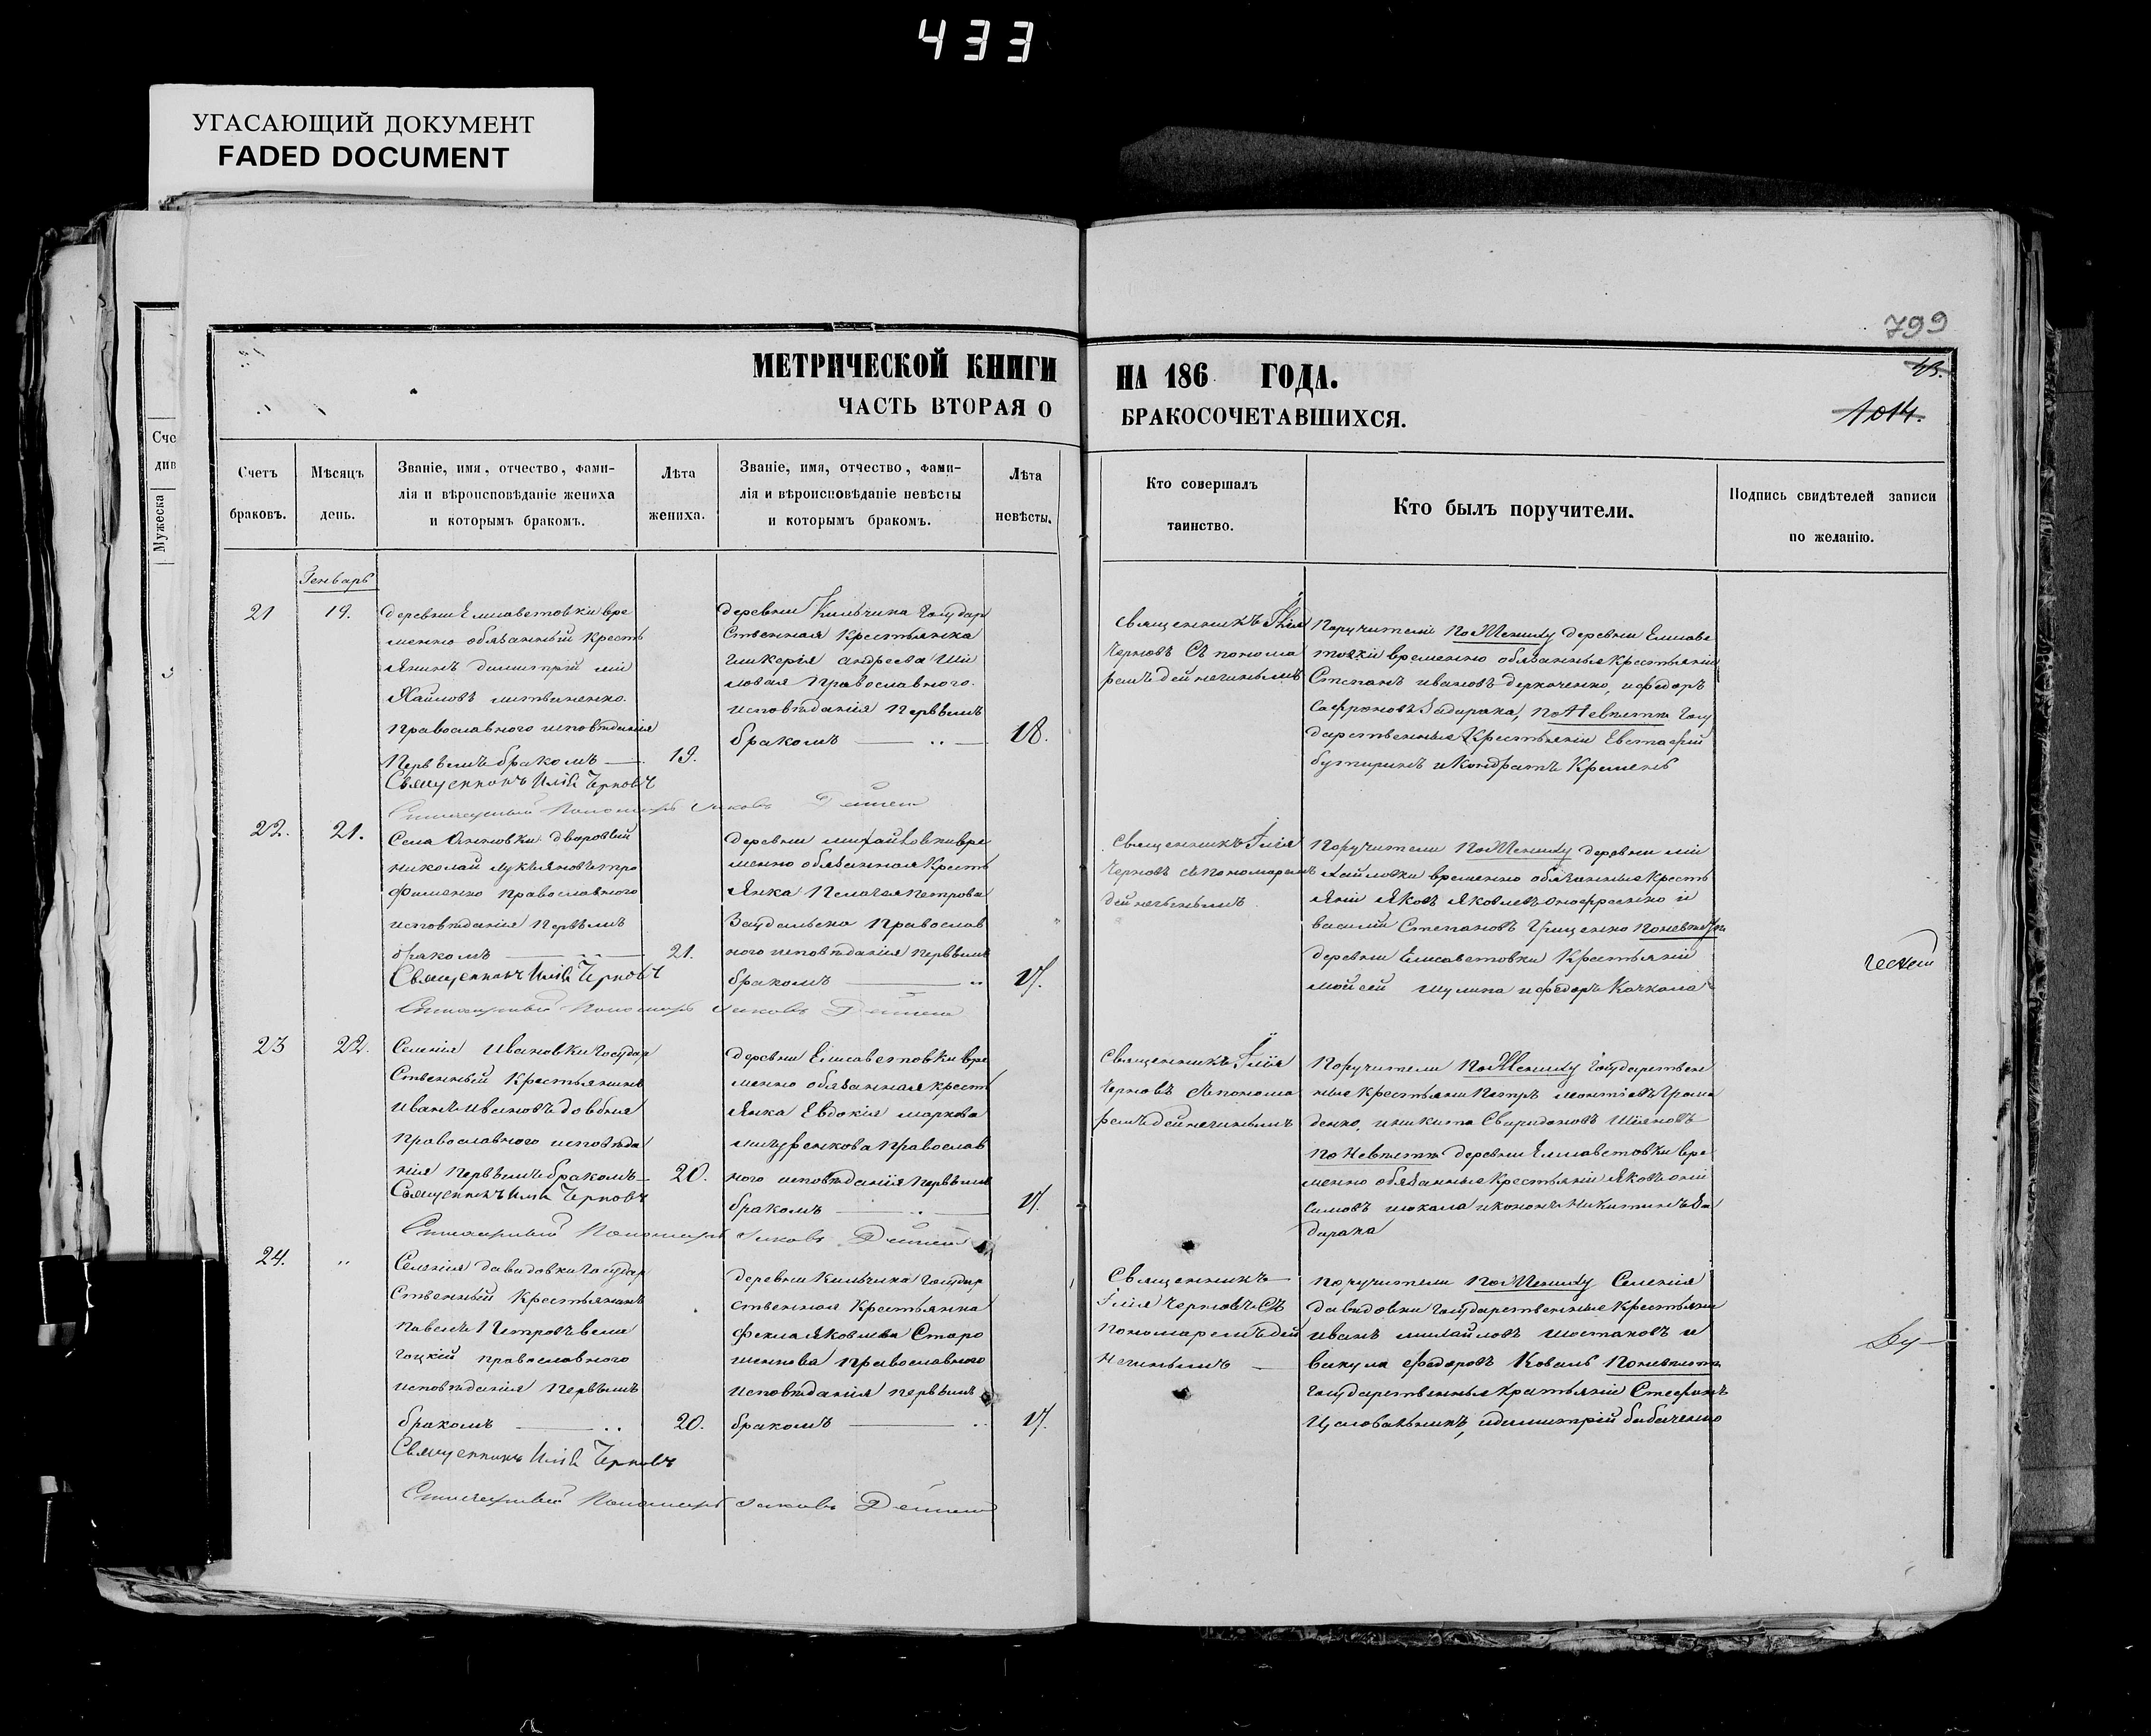 433
УГАСАЮЩИЙ ДОКУМЕНТ
FADED DOCUMENT
799
1014.
МЕТРИЧЕСКОЙ КНИГИ НА 186 ГОДА.
ЧАСТЬ ВТОРАЯ О БРАКОСОЧЕТАВШИХСЯ.
Сче
див
Мужеска
Счетъ браковъ.
Мѣсяцъ день.
Званіе, имя, отчество, фами-
лія и вѣроисповѣданіе жениха
и которымъ бракомъ.
Лѣта жениха.
Званіе, имя, отчество, фами-
лія и вѣроисповѣданіе невѣсты
и которымъ бракомъ.
Лѣта невѣсты.
Кто совершалъ
таинство.
Кто былъ поручители.
Подпись свидѣтелей записи
по желанію.
Генварь
21
19.
деревни Елисаветовки вре
менно обязанный Кресть
янинъ димитрій ми
хайловъ литвиненко.
православного исповѣданія
Первымъ бракомъ
19.
Священникъ Илія Черновъ
Пономарь Іаковъ
деревни Кильчина Государ
Ственная Крестьянка
гликерія андреева Ши
ловая Православного
исповѣданія Первымъ
бракомъ
18.
Священникъ Ілія
Черновъ Съ понома
ремъ дейнегинымъ
Поручители По Жениху деревни Елисаве
товки временно обязанные Крестьяни
Степанъ ивановъ деркаченко, и федоръ
Сафроновъ Задирака, По Невѣсте Госу
дарственные Крестьяни Евстафій
бутиринъ и Кондратъ Кремень
22.
21.
Села Анновки дворовый
николай лукьяновъ тро
фименко Православного
исповѣданія Первымъ
бракомъ
21.
Священникъ Илія Черновъ
Пономарь Іаковъ
деревни михайловки вре
менно обязанная Кресть
янка Пелагея Петрова
Православ
ного исповѣданія Первымъ
бракомъ
17.
Священникъ Ілія
Черновъ съ пономаремъ
дейнегинымъ
Поручители По Жениху деревни ми
хайловки временно обязанные Кресть
яни Яковъ Яковлевъ Онофренко и
василій Степановъ Грищенко По невѣсте
деревни Елисаветовки Крестьяни
мойсей шулика и федоръ Качкала
23
22.
Селенія Ивановки Государ
Ственный Крестьянинъ
иванъ ивановъ довбня
Православного исповѣда
нія Первымъ бракомъ
20.
Священникъ Илія Черновъ
Пономарь Іаковъ
деревни Елисаветовки вре
менно обязанная кресть
янка Евдокія маркова
Православ
ного исповѣданія Первымъ
бракомъ
17.
Священникъ Ілія
Черновъ Съ понома
ремъ дейнегинымъ
Поручители По Жениху Государствен
ные Крестьяни Петръ леонтіевъ Грома
денко, и никита Свиридоновъ Шіяновъ
По Невѣсте деревни Елисаветовки вре
менно обязанные Крестьяни Яковъ они
симовъ шокала и кононъ никитинъ За
дирака
24.
"
Селенія давидовки Государ
Ственный Крестьянинъ
павелъ Петровъ вели
гоцкій православного
исповѣданія Первымъ
бракомъ
20.
Священникъ Илія Черновъ
Пономарь Іаковъ
деревни Кильчина Государ
ственная Крестьянка
фекла Яковлева Старо
шенкова Православного
исповѣданія первымъ
бракомъ
17.
Священникъ
Ілія Черновъ Съ
пономаремъ дей
негинымъ
Поручители По Жениху Селенія
давидовки Государственные Крестьяни
иванъ михайловъ шостаковъ и
вакула федоровъ Коваль По невѣсте
Государственные крестьяни Стефанъ
Целовальникъ, и димитрій бабаченко